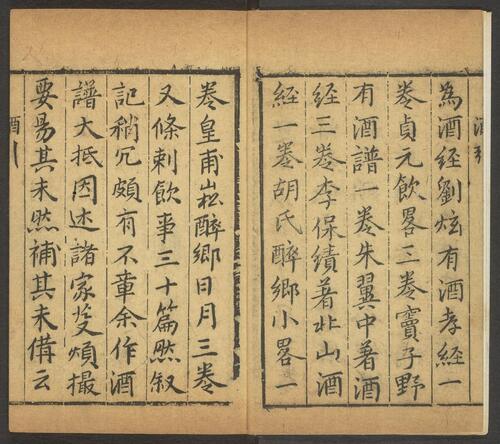 為酒經劉炫有酒孝經一
卷貞元飲畧三卷竇子野
有酒譜一卷朱翼中著酒
經三卷李保績著北山酒
經一卷胡氏醉鄉小畧一
卷皇甫崧醉鄉日月三卷
又條刺飲事三十篇然叙
記稍冗頗有不韋余作酒
譜大抵因述諸家芟煩撮
要易其未然補其未備云